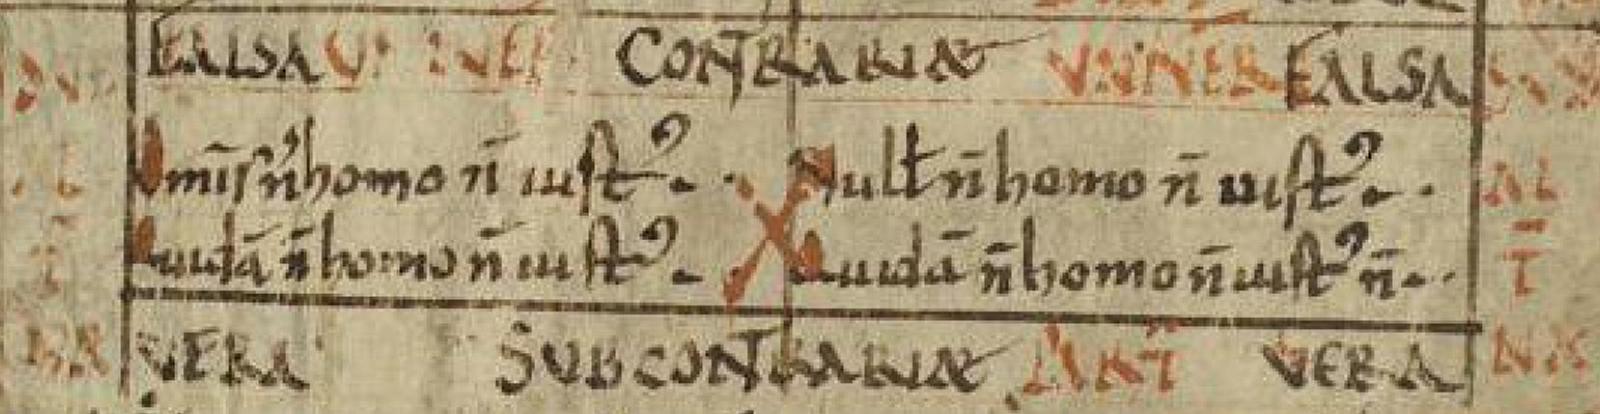 FALSA VNIVER CONTRARIAE VNIVER FALSA
Omīs n̄ homo n̄ iustꝰ. Null' n̄ homo n̄ iustꝰ.
Quidā n̄ homo n̄ iustꝰ. Quidā n̄ homo n̄ iustꝰ n̄.
VERA SVBCONTRARIAE PART VERA